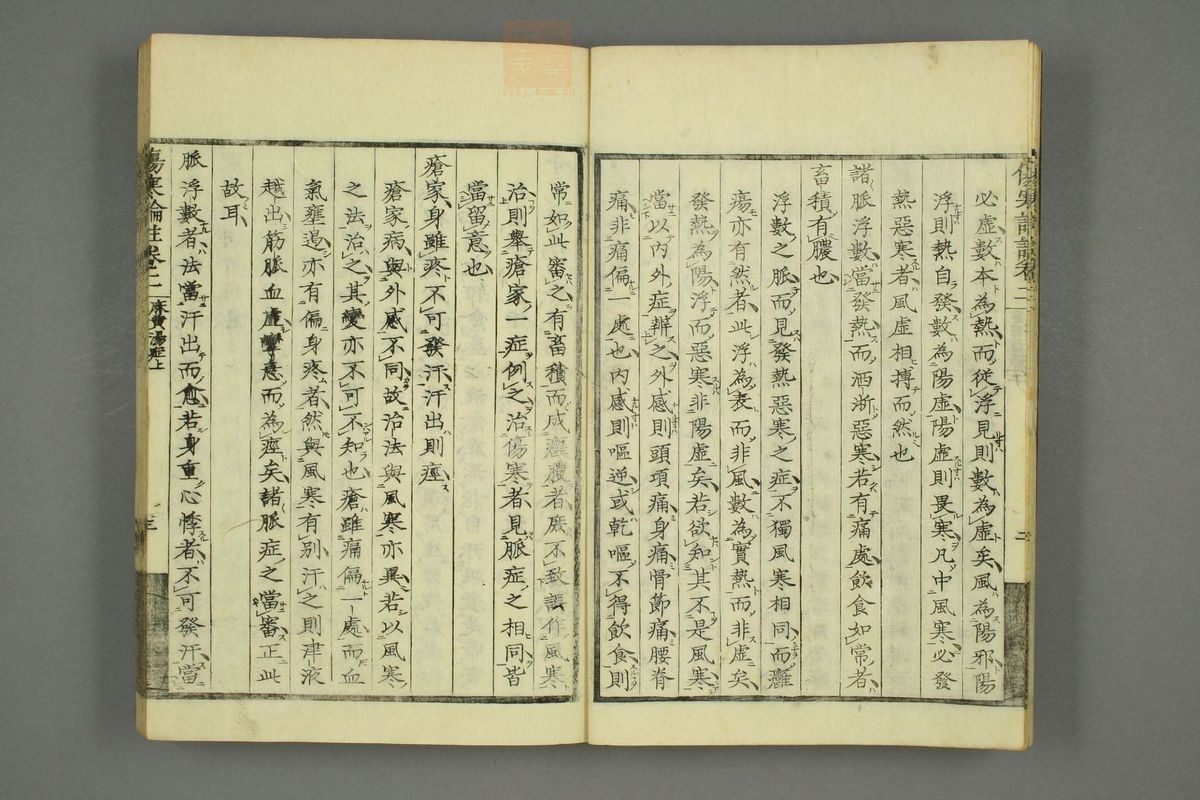 必虛數本為熱而從浮見則數為虛矣風為陽邪陽
浮則熱自發數為陽虛陽虛則畏寒凡中風寒必發
熱惡寒者風虛相搏而然也
諸脈浮數當發熱而洒淅惡寒若有痛處飲食如常者
畜積有膿也
浮數之脈而見發熱惡寒之症不獨風寒相同而癰
瘍亦有然者此浮為表而非風數為實熱而非虛矣
發熱為陽浮而惡寒非陽虛矣若欲知其不是風寒
當以內外症辨之外感則頭項痛身痛骨節痛腰脊
痛非痛偏一處也內感則嘔逆或乾嘔不得飲食則
常如此審之有畜積而成癰膿者庶不致誤作風寒
治則舉瘡家一症例之治傷寒者見脈症之相同皆
當留意也
瘡家身雖疼不可發汗汗出則痙
瘡家病與外感不同故治法與風寒亦異若以風寒
之法治之其變亦不可不知也瘡雖痛偏一處而血
氣壅遏亦有偏身疼者然與風寒有別汗之則津液
越出筋脈血虛攣急而為痙矣諸脈症之當審正此
故耳
脈浮數者法當汗出而愈若身重心悸者不可發汗當
傷寒論註卷二 麻黃湯症上 三
zysj.com.cn